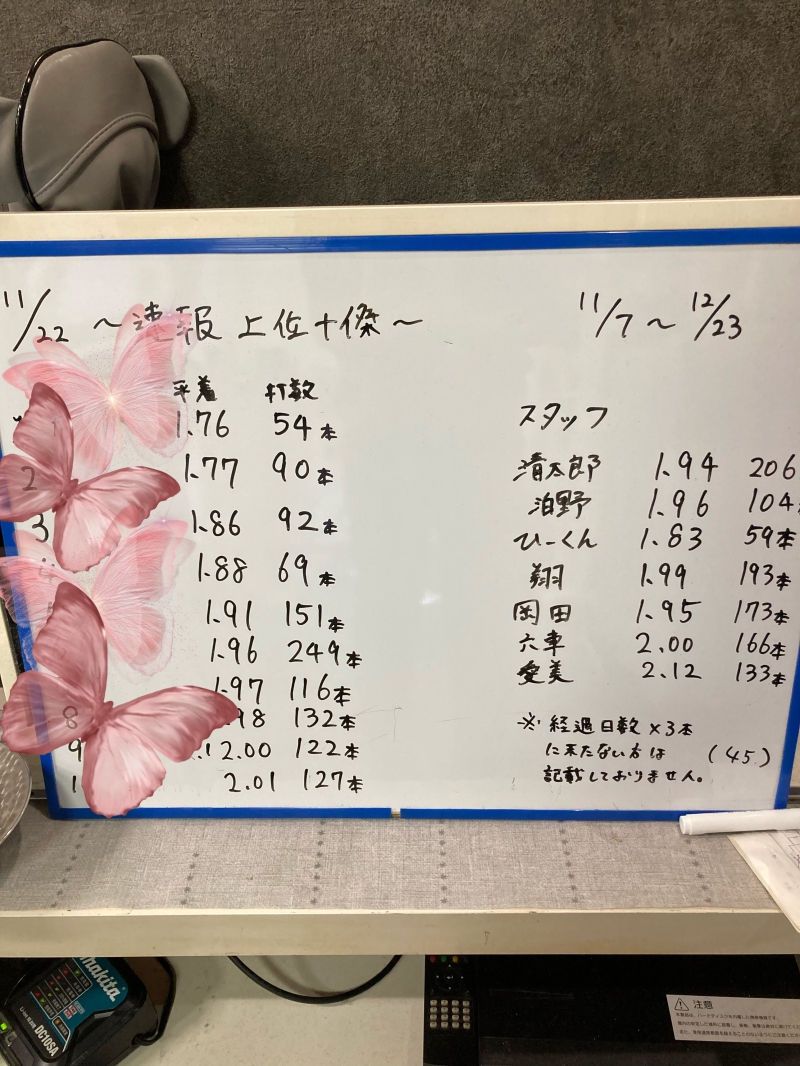 11/22 ～速報 上位十傑～
平着 打数
1 1.76 54本
2 1.77 90本
3 1.86 92本
1.88 69本
1.91 151本
1.96 249本
1.97 116本
8 .98 132本
9 2.00 122本
1 2.01 127本
11/7～12/23
スタッフ
清太郎 1.94 206
泊野 1.96 104本
ひーくん 1.83 59本
翔 1.99 193本
岡田 1.95 173本
六車 2.00 166本
愛美 2.12 133本
※経過日数×3本
に未たない方は (45)
記載しておりません。
makita
DC10SA
注意